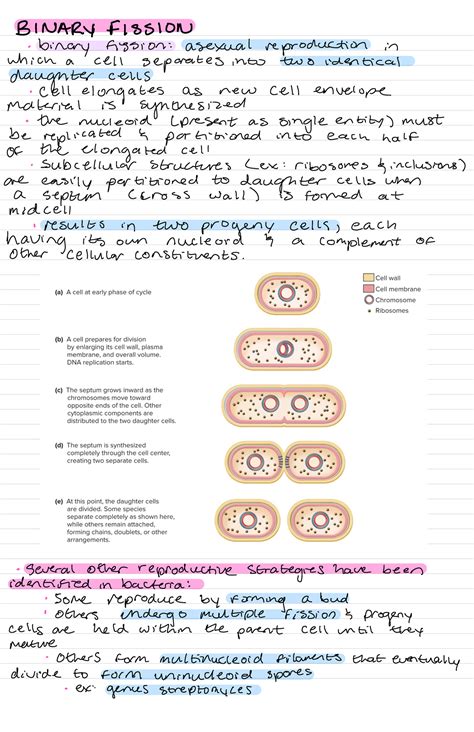 BINARY FISSION
· binary fission: asexual reproduction in
which a cell separates into two identical
daughter cells
· cell elongates as new cell envelope
material is synthesized
· the nucleoid (present as single entity) must
be replicated & partitioned into each half
of the elongated cell
· subcellular structures (ex: ribosomes & inclusions)
are easily partitioned to daughter cells when
a septum (cross wall) is formed at
midcell
· results in two progeny cells, each
having its own nucleoid & a complement of
other cellular constituents.
Cell wall
Cell membrane
Chromosome
Ribosomes
(a) A cell at early phase of cycle
(b) A cell prepares for division
by enlarging its cell wall, plasma
membrane, and overall volume.
DNA replication starts.
(c) The septum grows inward as the
chromosomes move toward
opposite ends of the cell. Other
cytoplasmic components are
distributed to the two daughter cells.
(d) The septum is synthesized
completely through the cell center,
creating two separate cells.
(e) At this point, the daughter cells
are divided. Some species
separate completely as shown here,
while others remain attached,
forming chains, doublets, or other
arrangements.
· Several other reproductive strategies have been
identified in bacteria:
· Some reproduce by forming a bud
· Others undergo multiple fission & progeny
cells are held within the parent cell until they
mature
· Others form multinucleoid filaments that eventually
divide to form uninucleoid spores
· ex: genus streptomyces